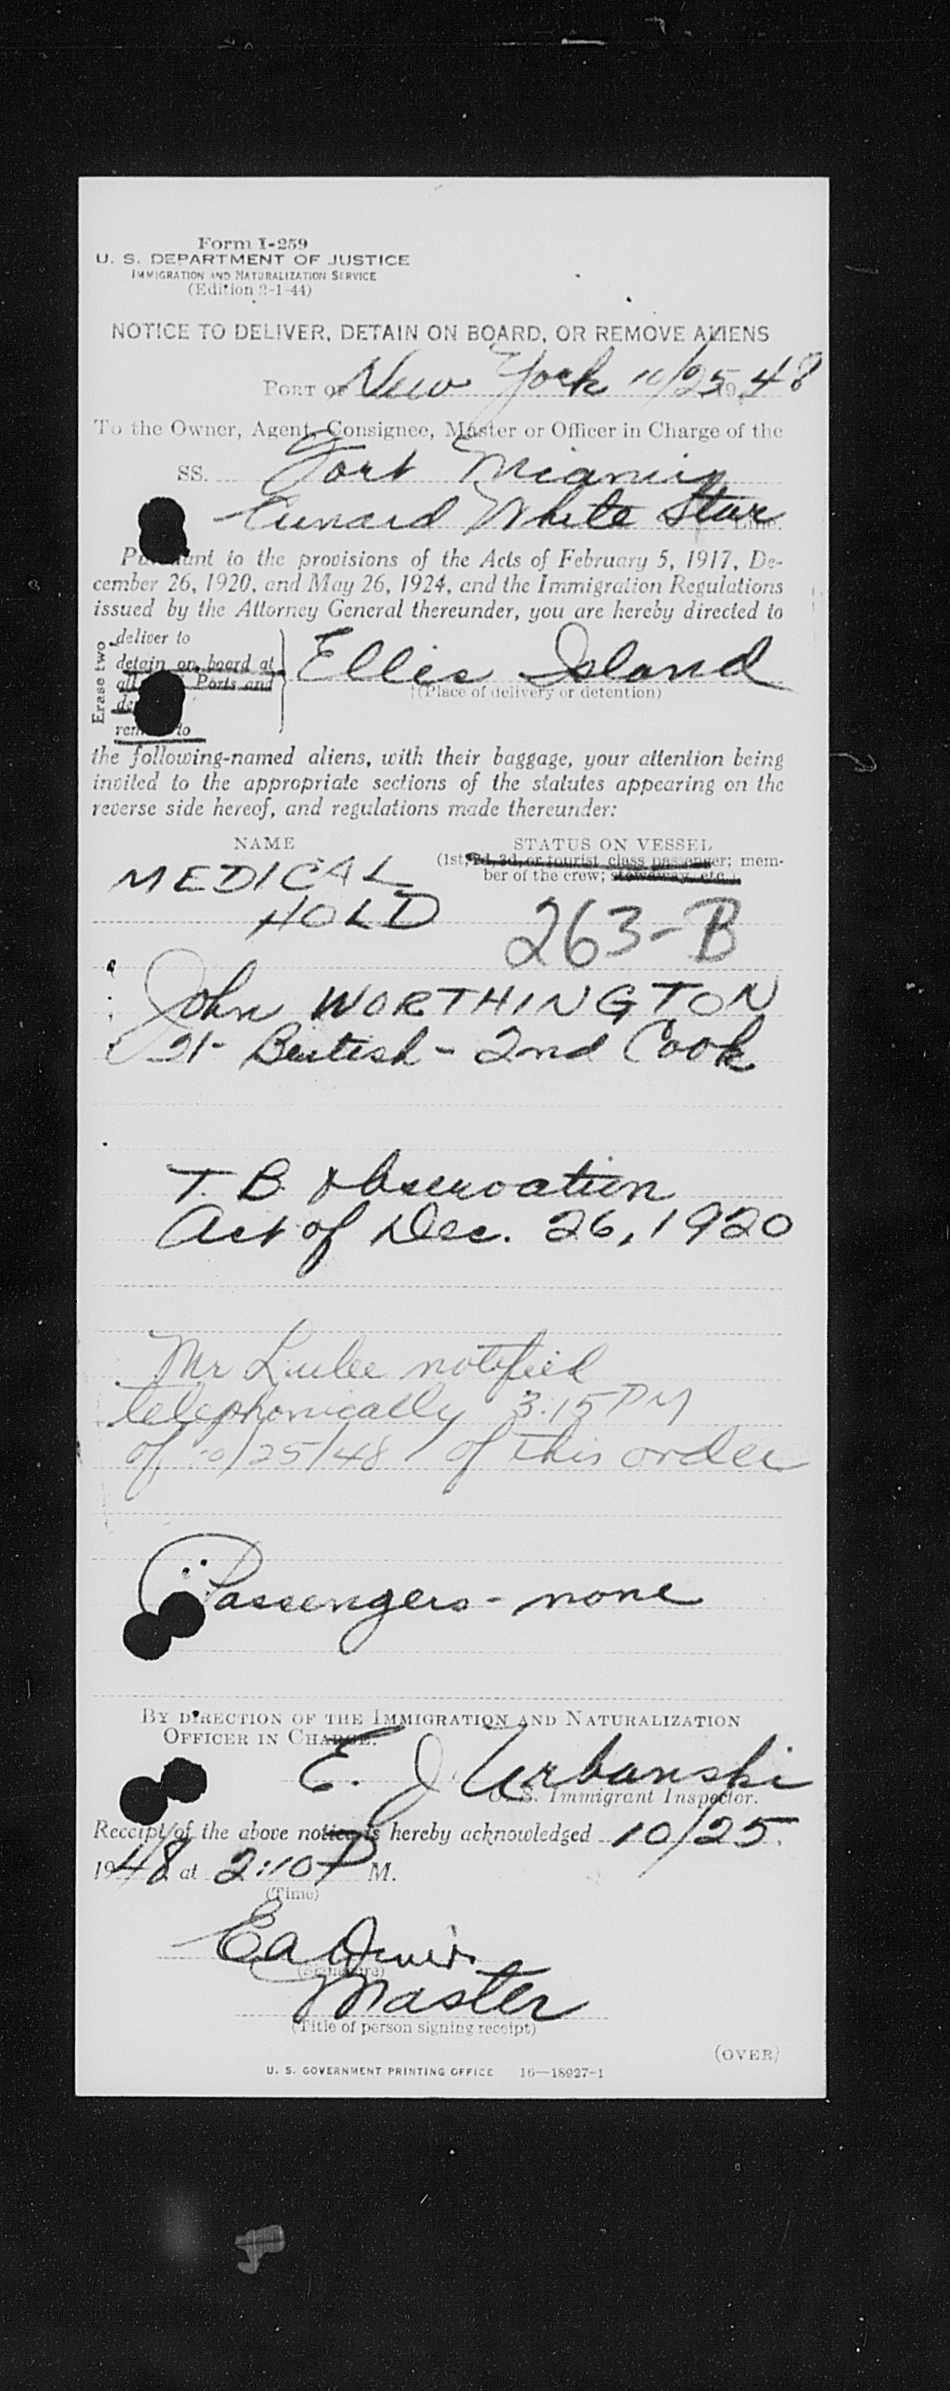 Form I-259
U. S. DEPARTMENT OF JUSTICE
IMMIGRATION AND NATURALIZATION SERVICE
(Edition 2-1-44)
NOTICE TO DELIVER, DETAIN ON BOARD, OR REMOVE ALIENS
PORT OF New York 10/25 19 48
To the Owner, Agent, Consignee, Master or Officer in Charge of the
SS. Fort
Cunard White Star Line.
Pursuant to the provisions of the Acts of February 5, 1917, De-
cember 26, 1920, and May 26, 1924, and the Immigration Regulations
issued by the Attorney General thereunder, you are hereby directed to
Erase two
deliver to
detain on board at
all Ports and
Ellis Island
(Place of delivery or detention)
the following-named aliens, with their baggage, your attention being
invited to the appropriate sections of the statutes appearing on the
reverse side hereof, and regulations made thereunder:
NAME STATUS ON VESSEL
(1st, 2d, 3d, or tourist class passenger; mem-
ber of the crew; stowaway, etc.)
MEDICAL
HOLD 263-B
John WORTHINGTON
21- British - 2nd Cook
T. B. observation
Act of Dec. 26, 1920
Mr notified
telephonically 3:15 PM
of 10/25/48 of this order
Passengers - none
BY DIRECTION OF THE IMMIGRATION AND NATURALIZATION
OFFICER IN CHARGE.
E. J. Urbanski
U. S. Immigrant Inspector.
Receipt of the above notice is hereby acknowledged 10/25
1948 at 2:10 P M.
(Time)
(Signature)
Master
(Title of person signing receipt)
(OVER)
U. S. GOVERNMENT PRINTING OFFICE 16—18927-1